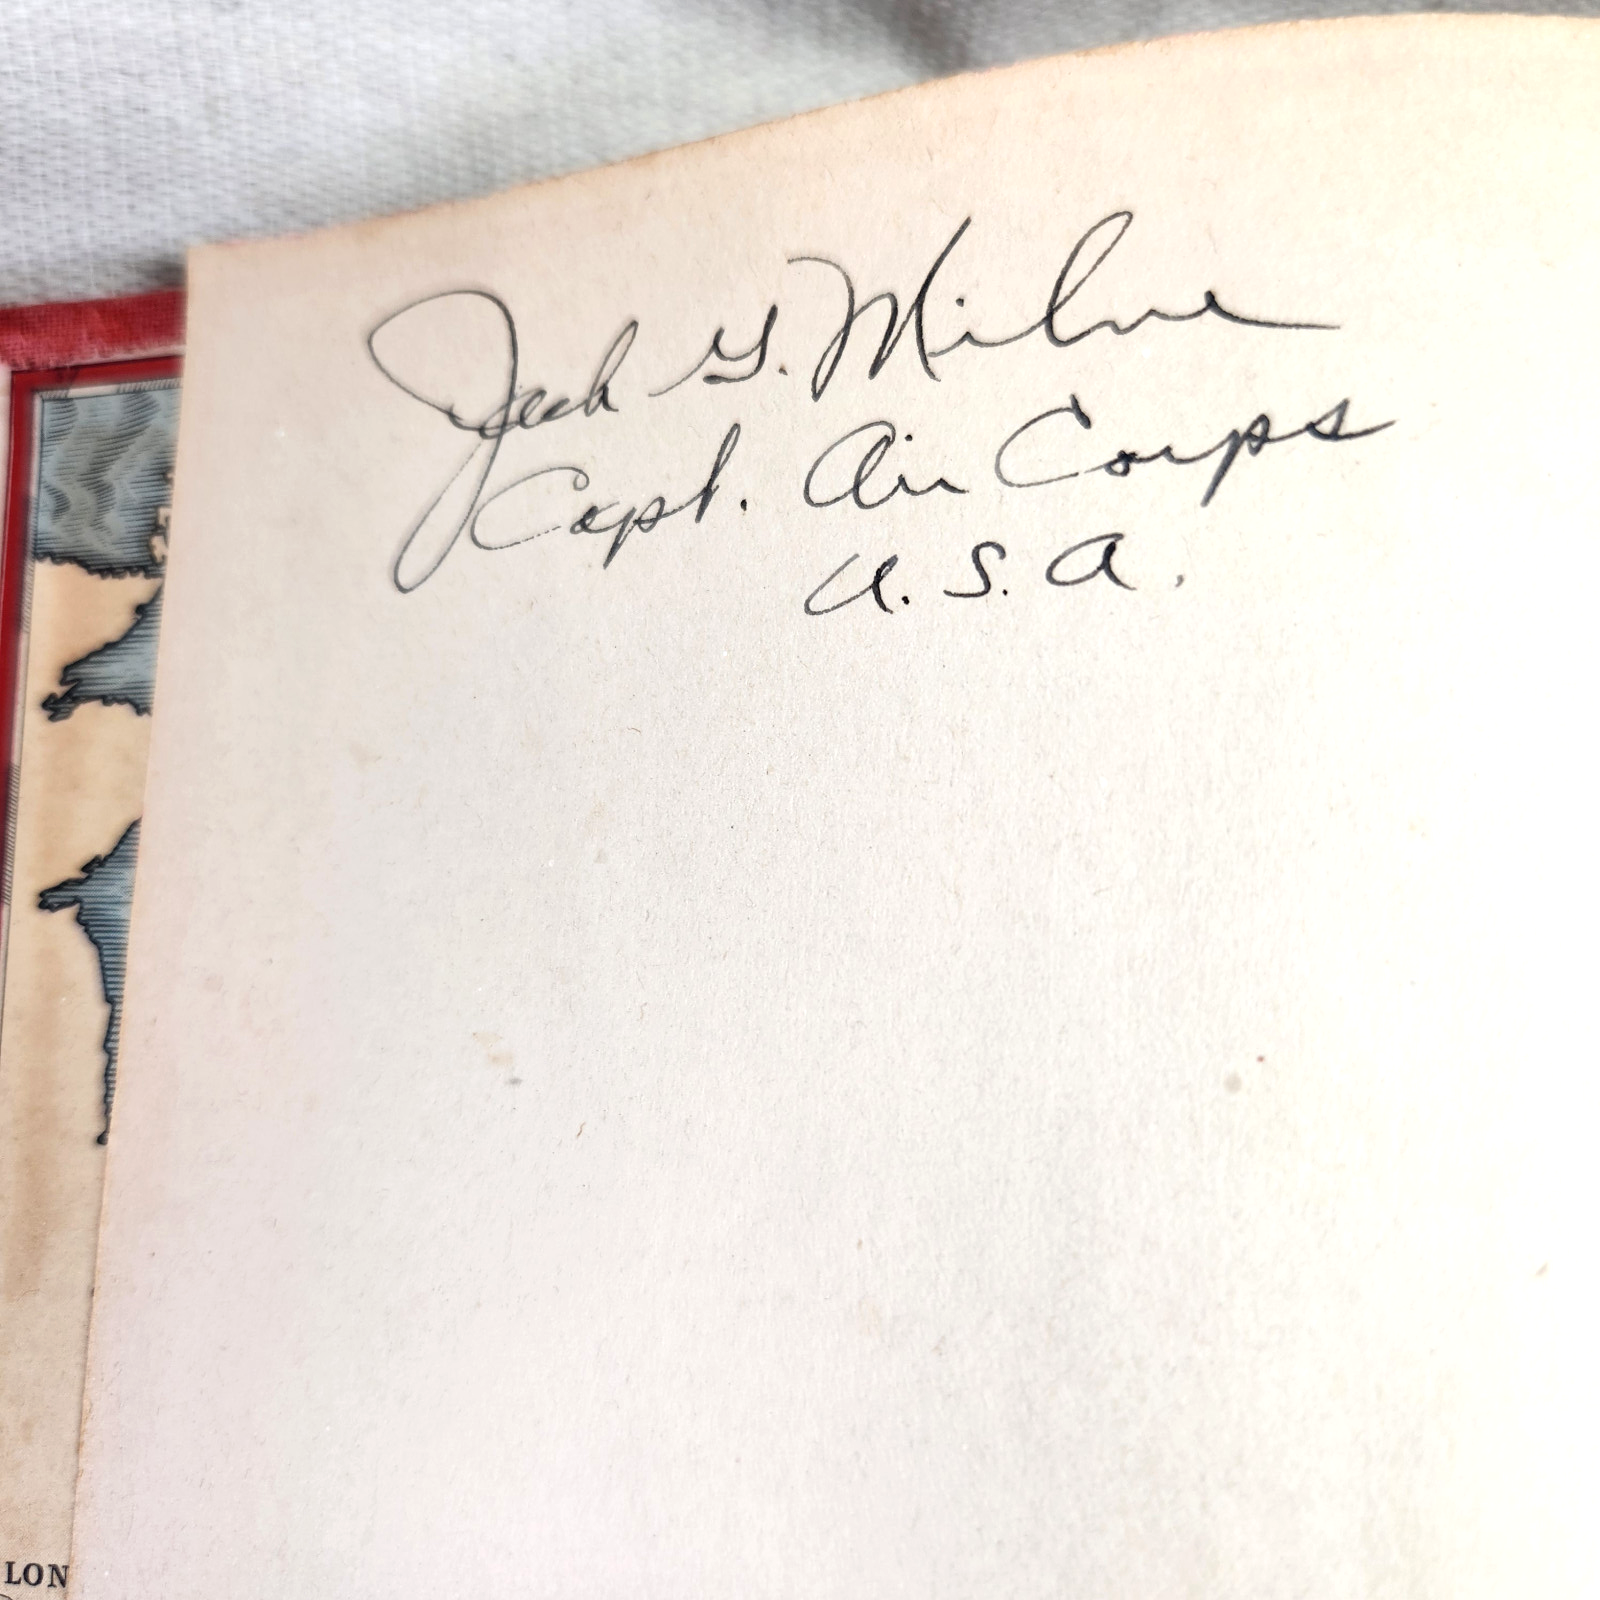 Jack G. Milne
Capt. Air Corps
U.S.A.
LON